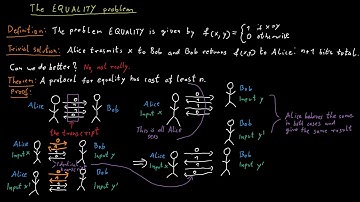 The EQUALITY problem
Definition: The problem EQUALITY is given by f(x,y) = { 1 if x=y
0 otherwise
Trivial solution: Alice transmits x to Bob and Bob returns f(x,y) to Alice: n+1 bits total.
Can we do better? No, not really.
Theorem: A protocol for equality has cost at least n.
Proof:
Alice
Bob
the transcript
Alice
Input x
This is all Alice
sees
Bob
Input y
Bob
Input y'
Alice behaves the same
in both cases and
give the same result
Alice
Input x
Bob
Input y
Alice
Input x'
Bob
Input y'
⇒
Alice
Input x
Bob
Input y'